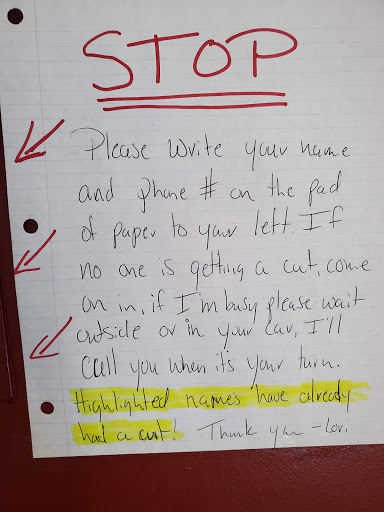 STOP
Please Write your name
and phone # on the pad
of paper to your left. If
no one is getting a cut, come
on in, if I'm busy please wait
outside or in your car, I'll
call you when it's your turn.
Highlighted names have already
had a cut! Thank you - Lori